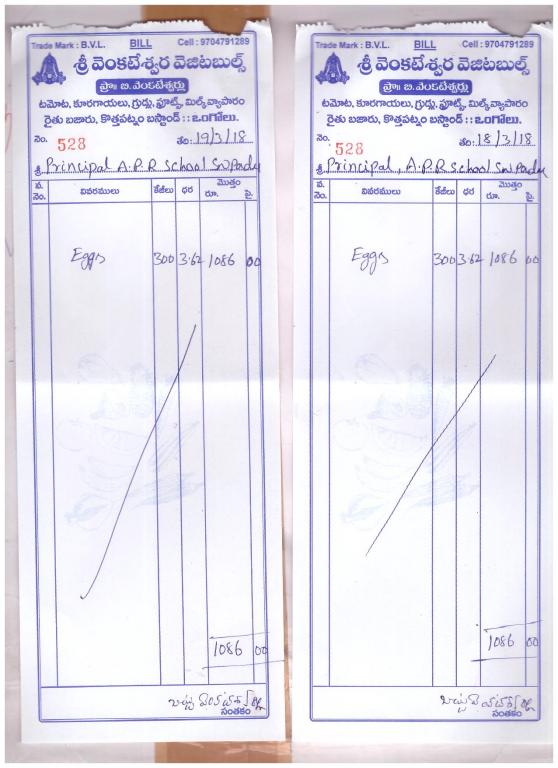 Trade Mark : B.V.L. BILL Cell : 9704791289
శ్రీ వెంకటేశ్వర వెజిటబుల్స్
ప్రొః బి.వెంకటేశ్వర్లు
టమోట, కూరగాయలు, గ్రుడ్లు, ఫ్రూట్స్, మిల్క్ వ్యాపారం
రైతు బజారు, కొత్తపట్నం బస్టాండ్ : : ఒంగోలు.
నెం. 528 తేది: 19/3/18
శ్రీ Principal A.P.R School
వ. నెం. వివరములు కేజీలు ధర మొత్తం రూ. పై.
Eggs 300 3.62 1086 00
1086 00
సంతకం
Trade Mark : B.V.L. BILL Cell : 9704791289
శ్రీ వెంకటేశ్వర వెజిటబుల్స్
ప్రొః బి.వెంకటేశ్వర్లు
టమోట, కూరగాయలు, గ్రుడ్లు, ఫ్రూట్స్, మిల్క్ వ్యాపారం
రైతు బజారు, కొత్తపట్నం బస్టాండ్ : : ఒంగోలు.
నెం. 528 తేది: 18/3/18
శ్రీ Principal, A.P.R School
వ. నెం. వివరములు కేజీలు ధర మొత్తం రూ. పై.
Eggs 300 3.62 1086 00
1086 00
సంతకం